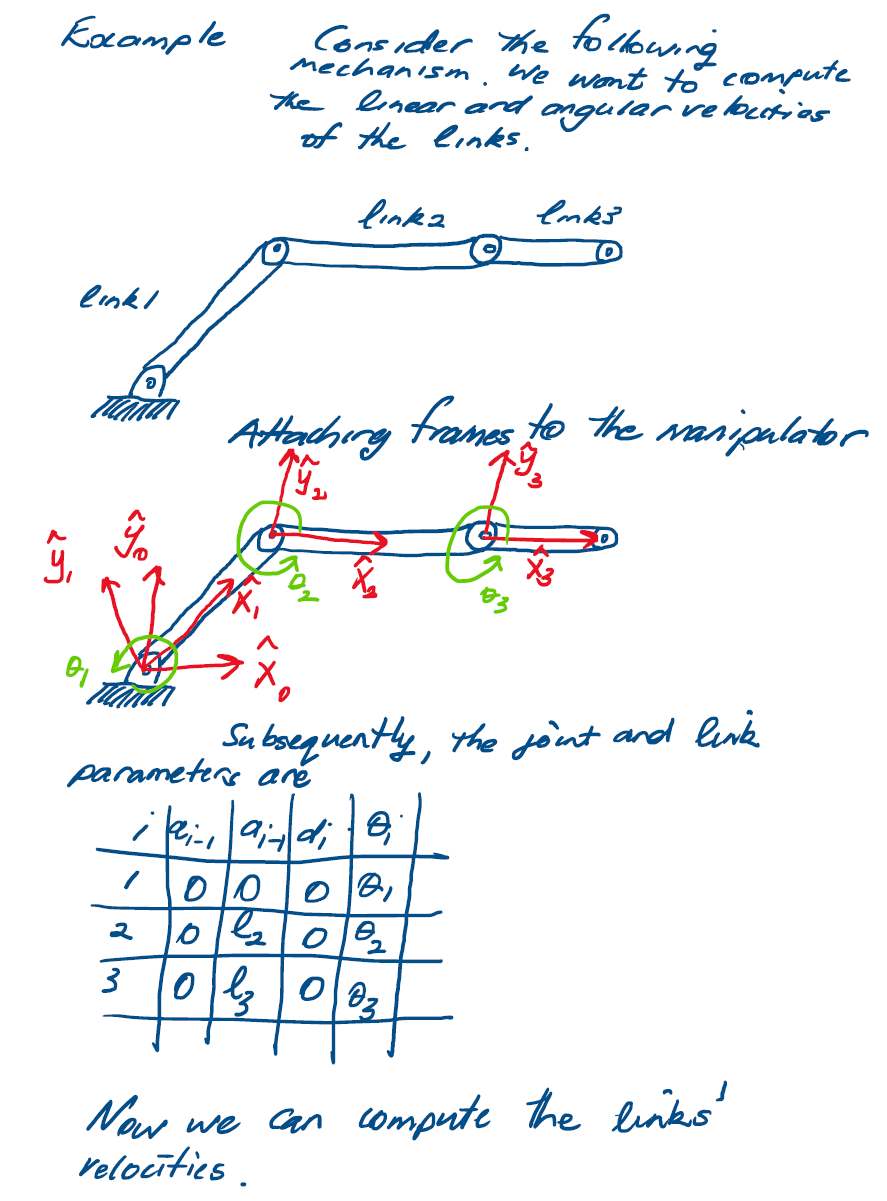 Example Consider the following
mechanism. We want to compute
the linear and angular velocities
of the links.
link2 link3
link1
Attaching frames to the manipulator
ŷ₂ ŷ₃
ŷ₁ ŷ₀
x̂₁ θ₂ x̂₂ θ₃ x̂₃
θ₁ x̂₀
Subsequently, the joint and link
parameters are
i αᵢ₋₁ aᵢ₋₁ dᵢ θᵢ
1 0 0 0 θ₁
2 0 l₂ 0 θ₂
3 0 l₃ 0 θ₃
Now we can compute the links'
velocities.